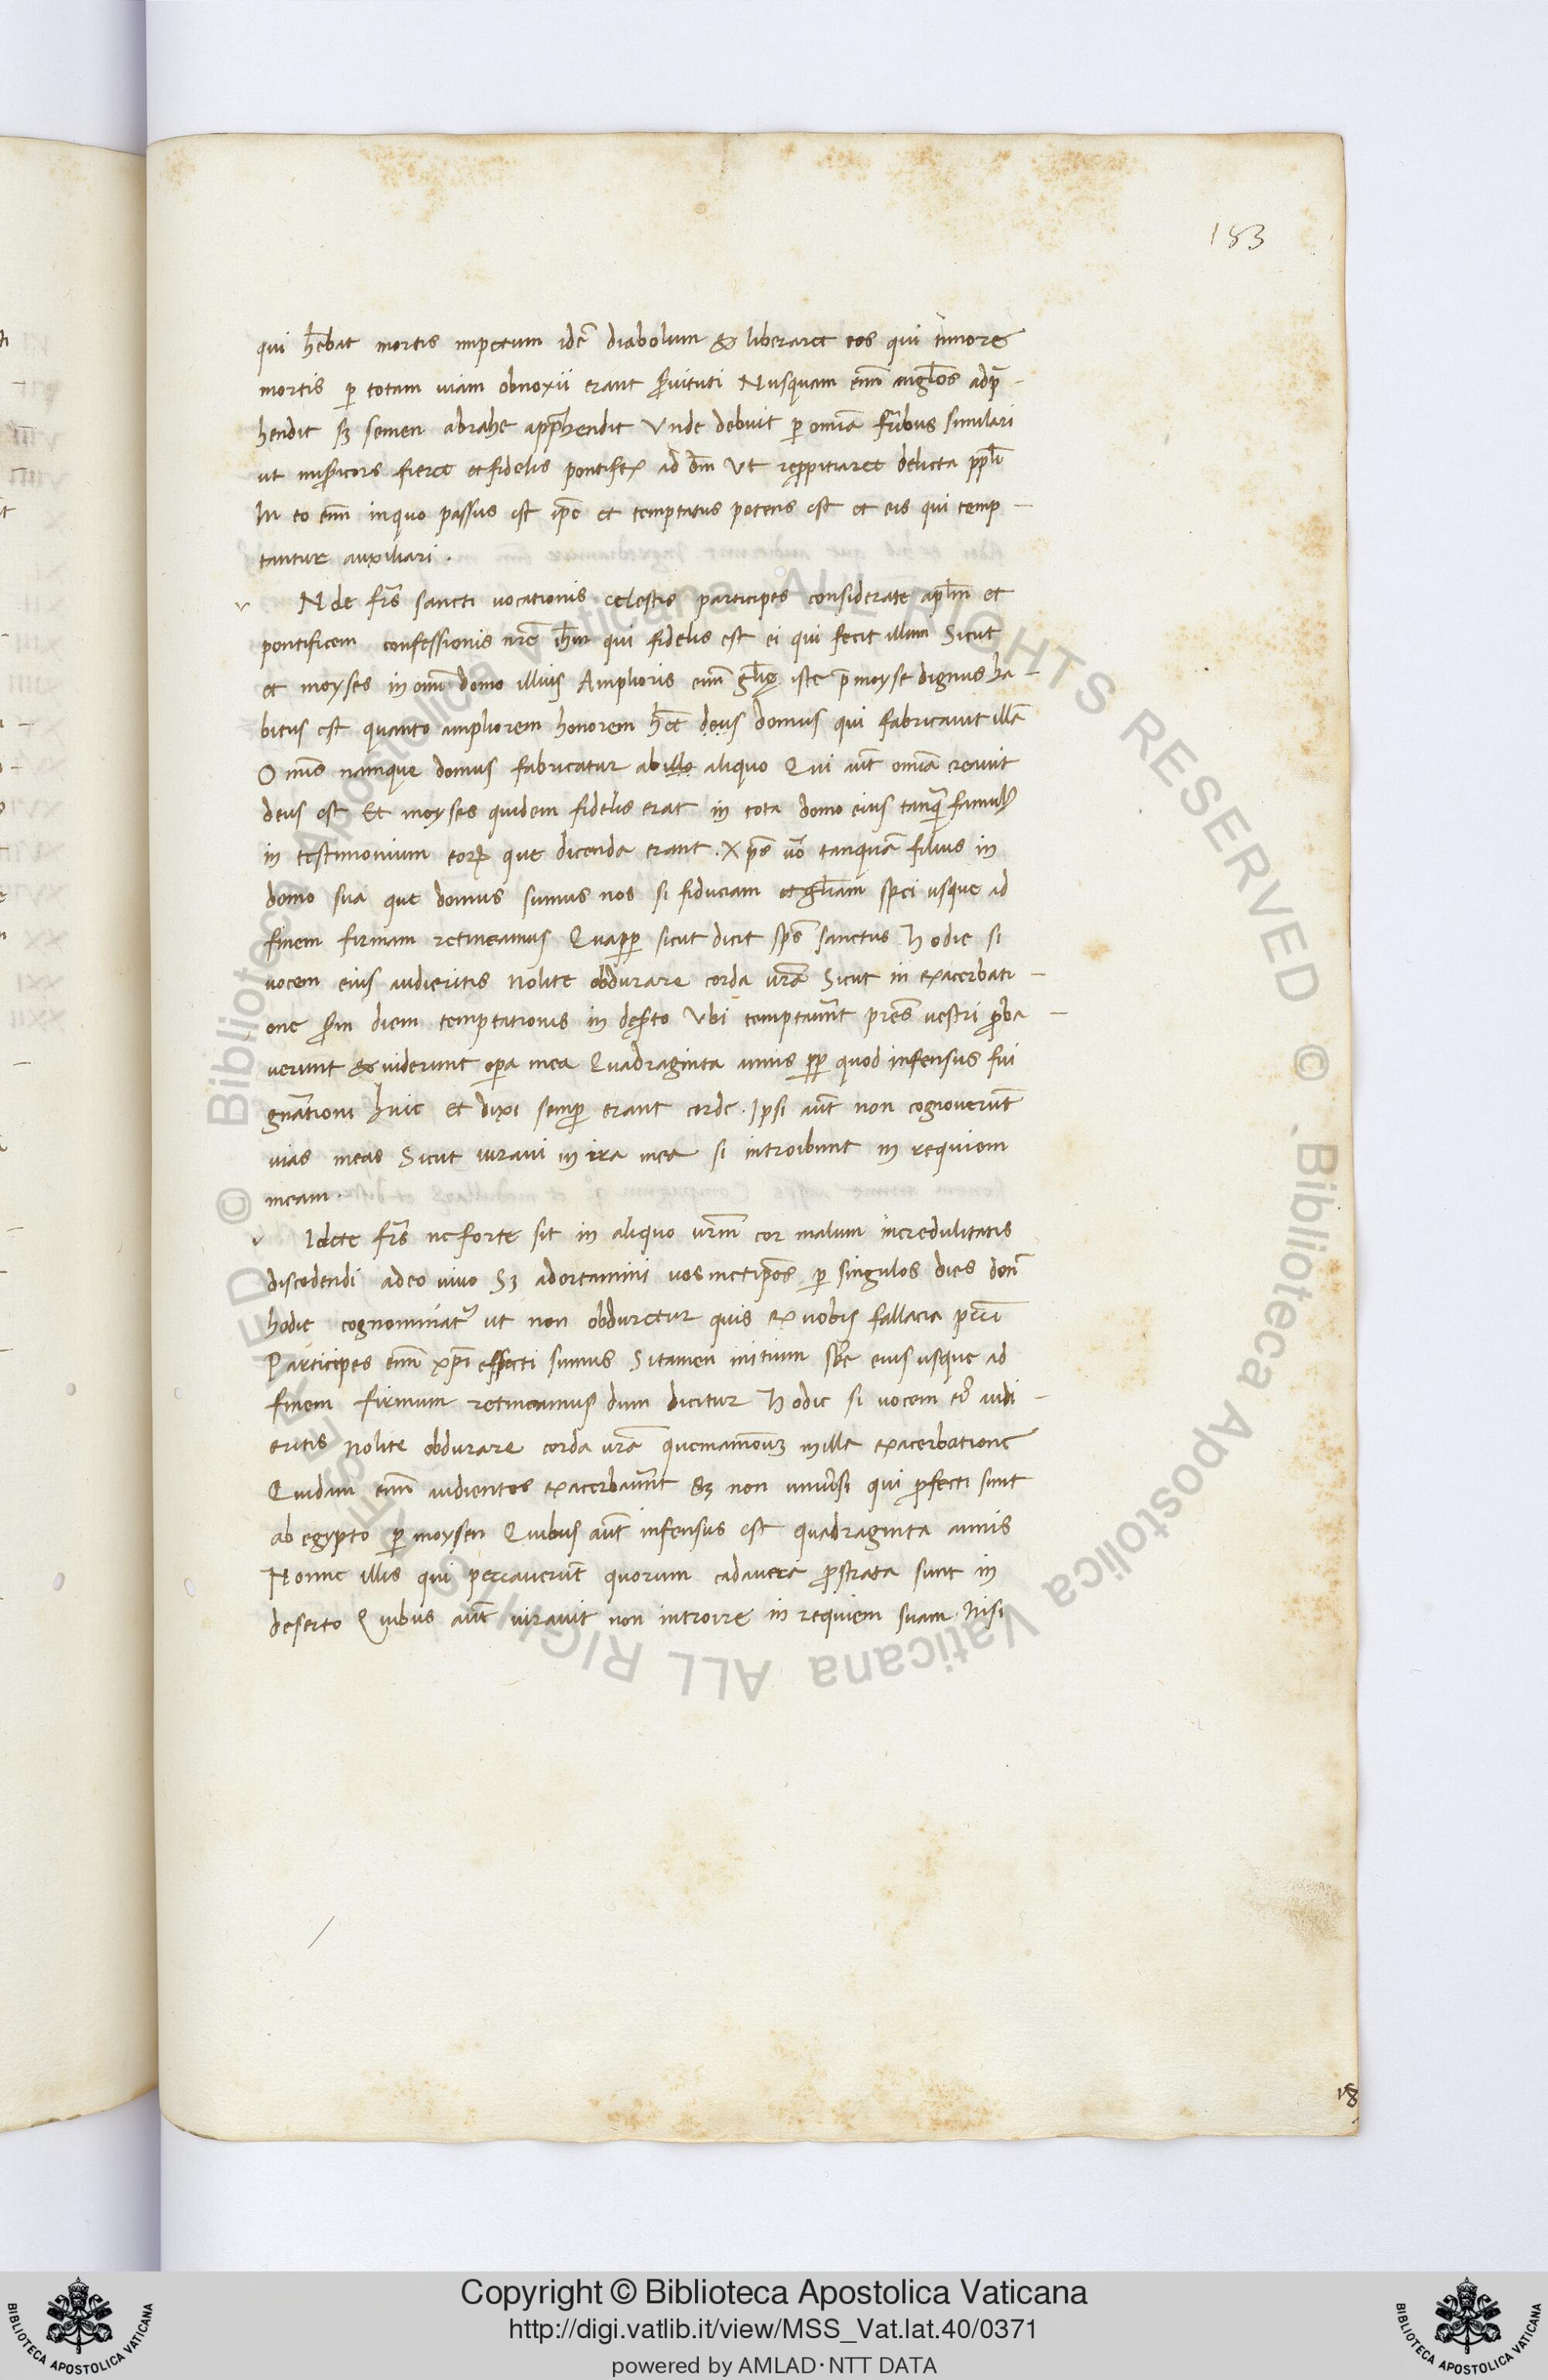 183
qui hēbat mortis imperium idē diabolum & liberaret eos qui timore
mortis p̄ totam uitam obnoxii erant s̄uituti Nusquam enī angl̄os adpr̄-
hendit sʒ semen abrahe appr̄hendit Vnde debuit p̄ omīa frībus similari
ut mis̄icors fieret et fidelis pontifex ad dm̄ Vt repropitiaret delicta ppl̄i
In eo enī inquo passus est ip̄e et temptatus potens est et eis qui temp-
tantur auxiliari.
v Nde fr̄s sancti uocationis celestis participes considerate apl̄m et
pontificem confessionis nrē ih̄m qui fidelis est ei qui fecit illum Sicut
et moyses in omī domo illius Amplioris enī gl̄ię iste p̄ moyse dignus ha-
bitus est quanto ampliorem honorem hēt deus domus qui fabricauit illā
Omīs namque domus fabricatur ab illo aliquo Qui aūt omīa creauit
deus est Et moyses quidem fidelis erat in tota domo eius tanq̄ famulꝰ
in testimonium eorꝝ que dicenda erant. Xp̄s uō tanquā filius in
domo sua que domus sumus nos si fiduciam et gl̄iam spei usque ad
finem firmam retineamus Quapp̄ sicut dicit sp̄s sanctus Hodie si
uocem eius audieritis Nolite obdurare corda ur̄a Sicut in exacerbati-
one s̄m diem temptationis in des̄to Vbi temptauer̄t pr̄es uestri p̄ba-
uerunt & uiderunt op̄a mea Quadraginta annis pp̄ quod infensus fui
gnātioni huic et dixi semp̄ errant corde. Ipsi aūt non cognouerūt
uias meas Sicut iuraui in ira mea si introibunt in requiem
meam.
v Idete fr̄s ne forte sit in aliquo ur̄m cor malum incredulitatis
discedendi adeo uiuo Sʒ adortamini uosmetip̄os p̄ singulos dies donē
hodie cognominatᷣ ut non obduretur quis ex uobis fallacia pccī
Participes enī xp̄i effecti sumus Si tamen initium sbē eius usque ad
finem firmum retineamus dum dicitur Hodie si uocem eiꝰ audi-
eritis Nolite obdurare corda ur̄a quemadmodū in illa exacerbatione
Quidam enī audientes exacerbauer̄t Sʒ non uniūsi qui p̄fecti sunt
ab egypto p̄ moysen Quibus aūt infensus est quadraginta annis
Nonne illis qui peccauerūt quorum cadauera p̄strata sunt in
deserto Quibus aūt iurauit non introire in requiem suam Nisi
18
© Biblioteca Apostolica Vaticana ALL RIGHTS RESERVED © Biblioteca Apostolica Vaticana ALL RIGHTS RESERVED
Copyright © Biblioteca Apostolica Vaticana
http://digi.vatlib.it/view/MSS_Vat.lat.40/0371
powered by AMLAD·NTT DATA
BIBLIOTECA APOSTOLICA VATICANA
BIBLIOTECA APOSTOLICA VATICANA